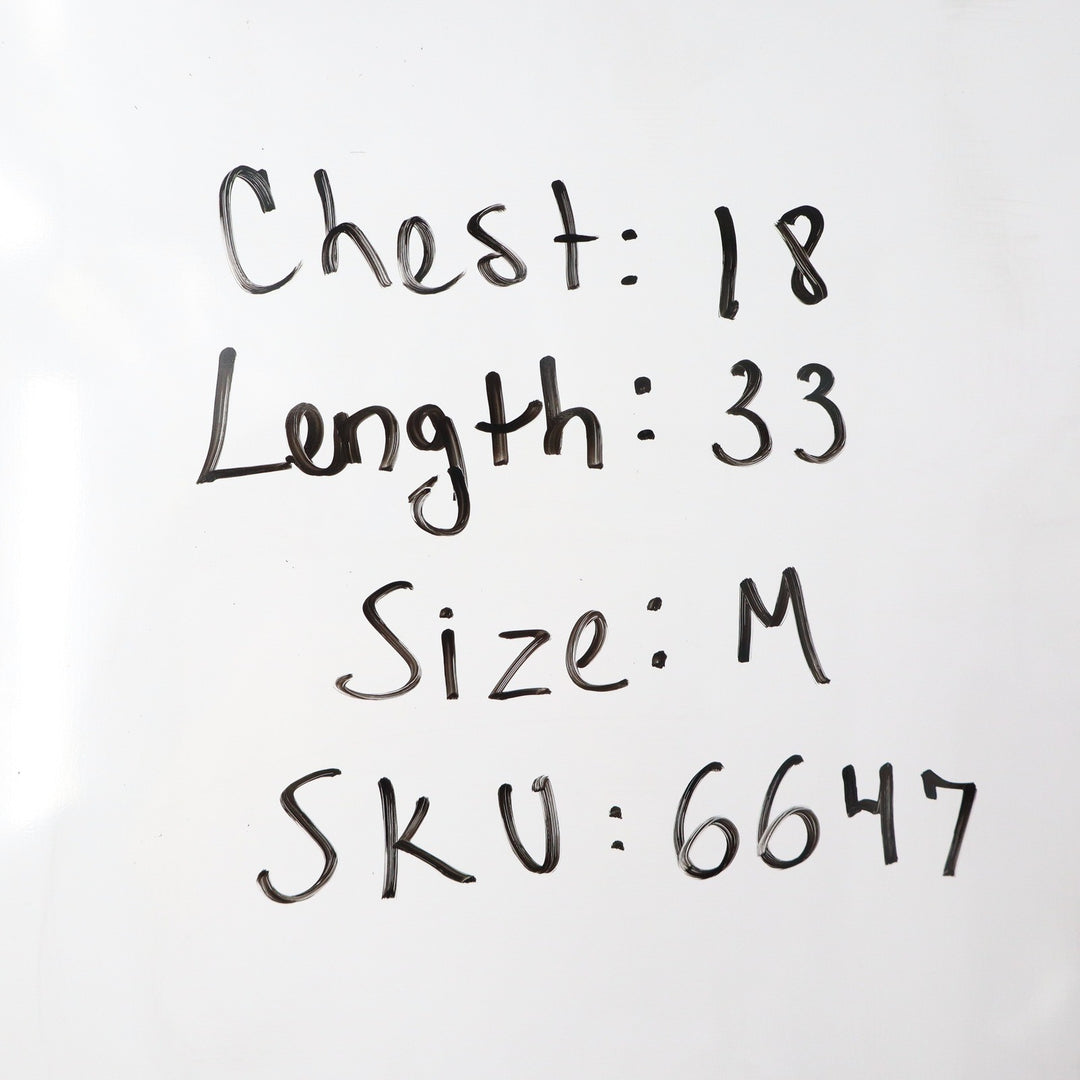 Chest: 18
Length: 33
Size: M
SKU: 6647